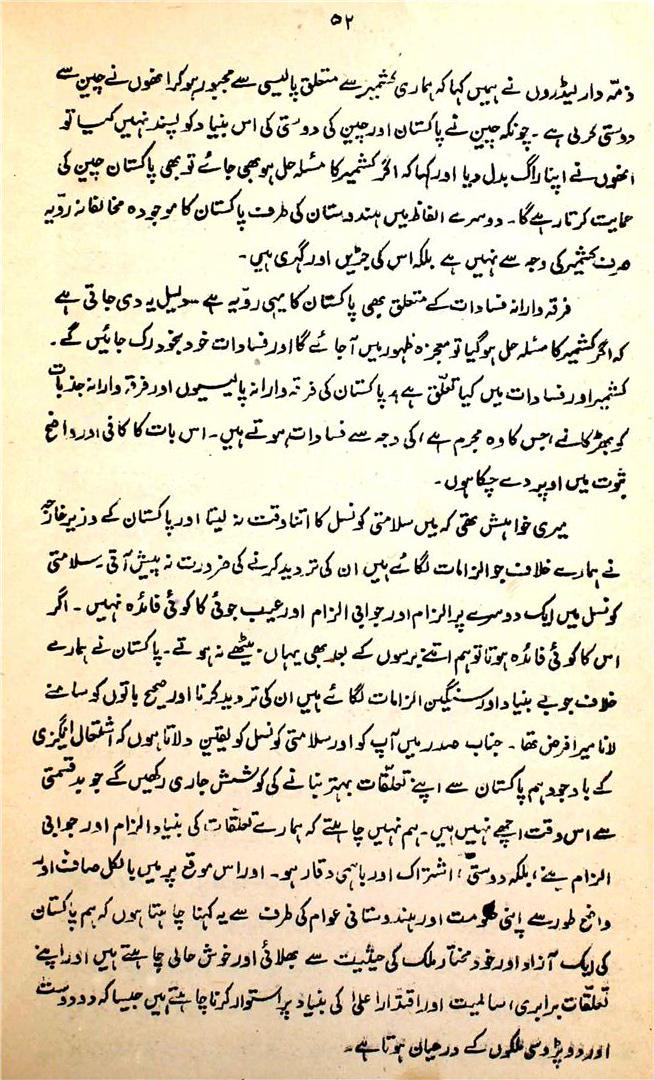 ۵۲
ذمہ دار لیڈروں نے ہمیں کہا کہ ہماری کشمیر سے متعلق پالیسی سے مجبور ہو کر انھوں نے چین سے
دوستی کر لی ہے۔ چونکہ چین نے پاکستان اور چین کی دوستی کی اس بنیاد کو پسند نہیں کیا تو
انھوں نے اپنا راگ بدل دیا اور کہا کہ اگر کشمیر کا مسئلہ حل ہو بھی جائے تو بھی پاکستان چین کی
حمایت کرتا رہے گا۔ دوسرے الفاظ میں ہندوستان کی طرف پاکستان کا موجودہ مخالفانہ رویّہ
صرف کشمیر کی وجہ سے نہیں ہے بلکہ اس کی جڑیں اور گہری ہیں۔
فرقہ وارانہ فسادات کے متعلق بھی پاکستان کا یہی رویّہ ہے۔ دلیل یہ دی جاتی ہے
کہ اگر کشمیر کا مسئلہ حل ہو گیا تو معجزہ ظہور میں آ جائے گا اور فسادات خود بخود رک جائیں گے۔
کشمیر اور فسادات میں کیا تعلّق ہے؟ پاکستان کی فرقہ وارانہ پالیسیوں اور فرقہ وارانہ جذبات
کو بھڑکانے (جس کا وہ مجرم ہے) کی وجہ سے فسادات ہوتے ہیں۔ اس بات کا کافی اور واضح
ثبوت میں اوپر دے چکا ہوں۔
میری خواہش تھی کہ میں سلامتی کونسل کا اتنا وقت نہ لیتا اور پاکستان کے وزیر خارجہ
نے ہمارے خلاف جو الزامات لگائے ہیں ان کی تردید کرنے کی ضرورت نہ پیش آتی۔ سلامتی
کونسل میں ایک دوسرے پر الزام اور جوابی الزام اور عیب جوئی کا کوئی فائدہ نہیں۔ اگر
اس کا کوئی فائدہ ہوتا تو ہم اتنے برسوں کے بعد بھی یہاں بیٹھے نہ ہوتے۔ پاکستان نے ہمارے
خلاف جو بے بنیاد اور سنگین الزامات لگائے ہیں ان کی تردید کرنا اور صحیح باتوں کو سامنے
لانا میرا فرض تھا۔ جناب صدر میں آپ کو اور سلامتی کونسل کو یقین دلاتا ہوں کہ اشتعال انگیزی
کے باوجود ہم پاکستان سے اپنے تعلّقات بہتر بنانے کی کوشش جاری رکھیں گے جو بدقسمتی
سے اس وقت اچھے نہیں ہیں۔ ہم نہیں چاہتے کہ ہمارے تعلّقات کی بنیاد الزام اور جوابی
الزام بنے، بلکہ دوستی، اشتراک اور باہمی وقار ہو۔ اور اس موقع پر میں بالکل صاف اور
واضح طور سے اپنی حکومت اور ہندوستانی عوام کی طرف سے یہ کہنا چاہتا ہوں کہ ہم پاکستان
کی ایک آزاد اور خود مختار ملک کی حیثیت سے بھلائی اور خوش حالی چاہتے ہیں اور اپنے
تعلّقات برابری، سالمیت اور اقتدار اعلیٰ کی بنیاد پر استوار کرنا چاہتے ہیں جیسا کہ دو دوست
اور دو پڑوسی ملکوں کے درمیان ہوتا ہے۔